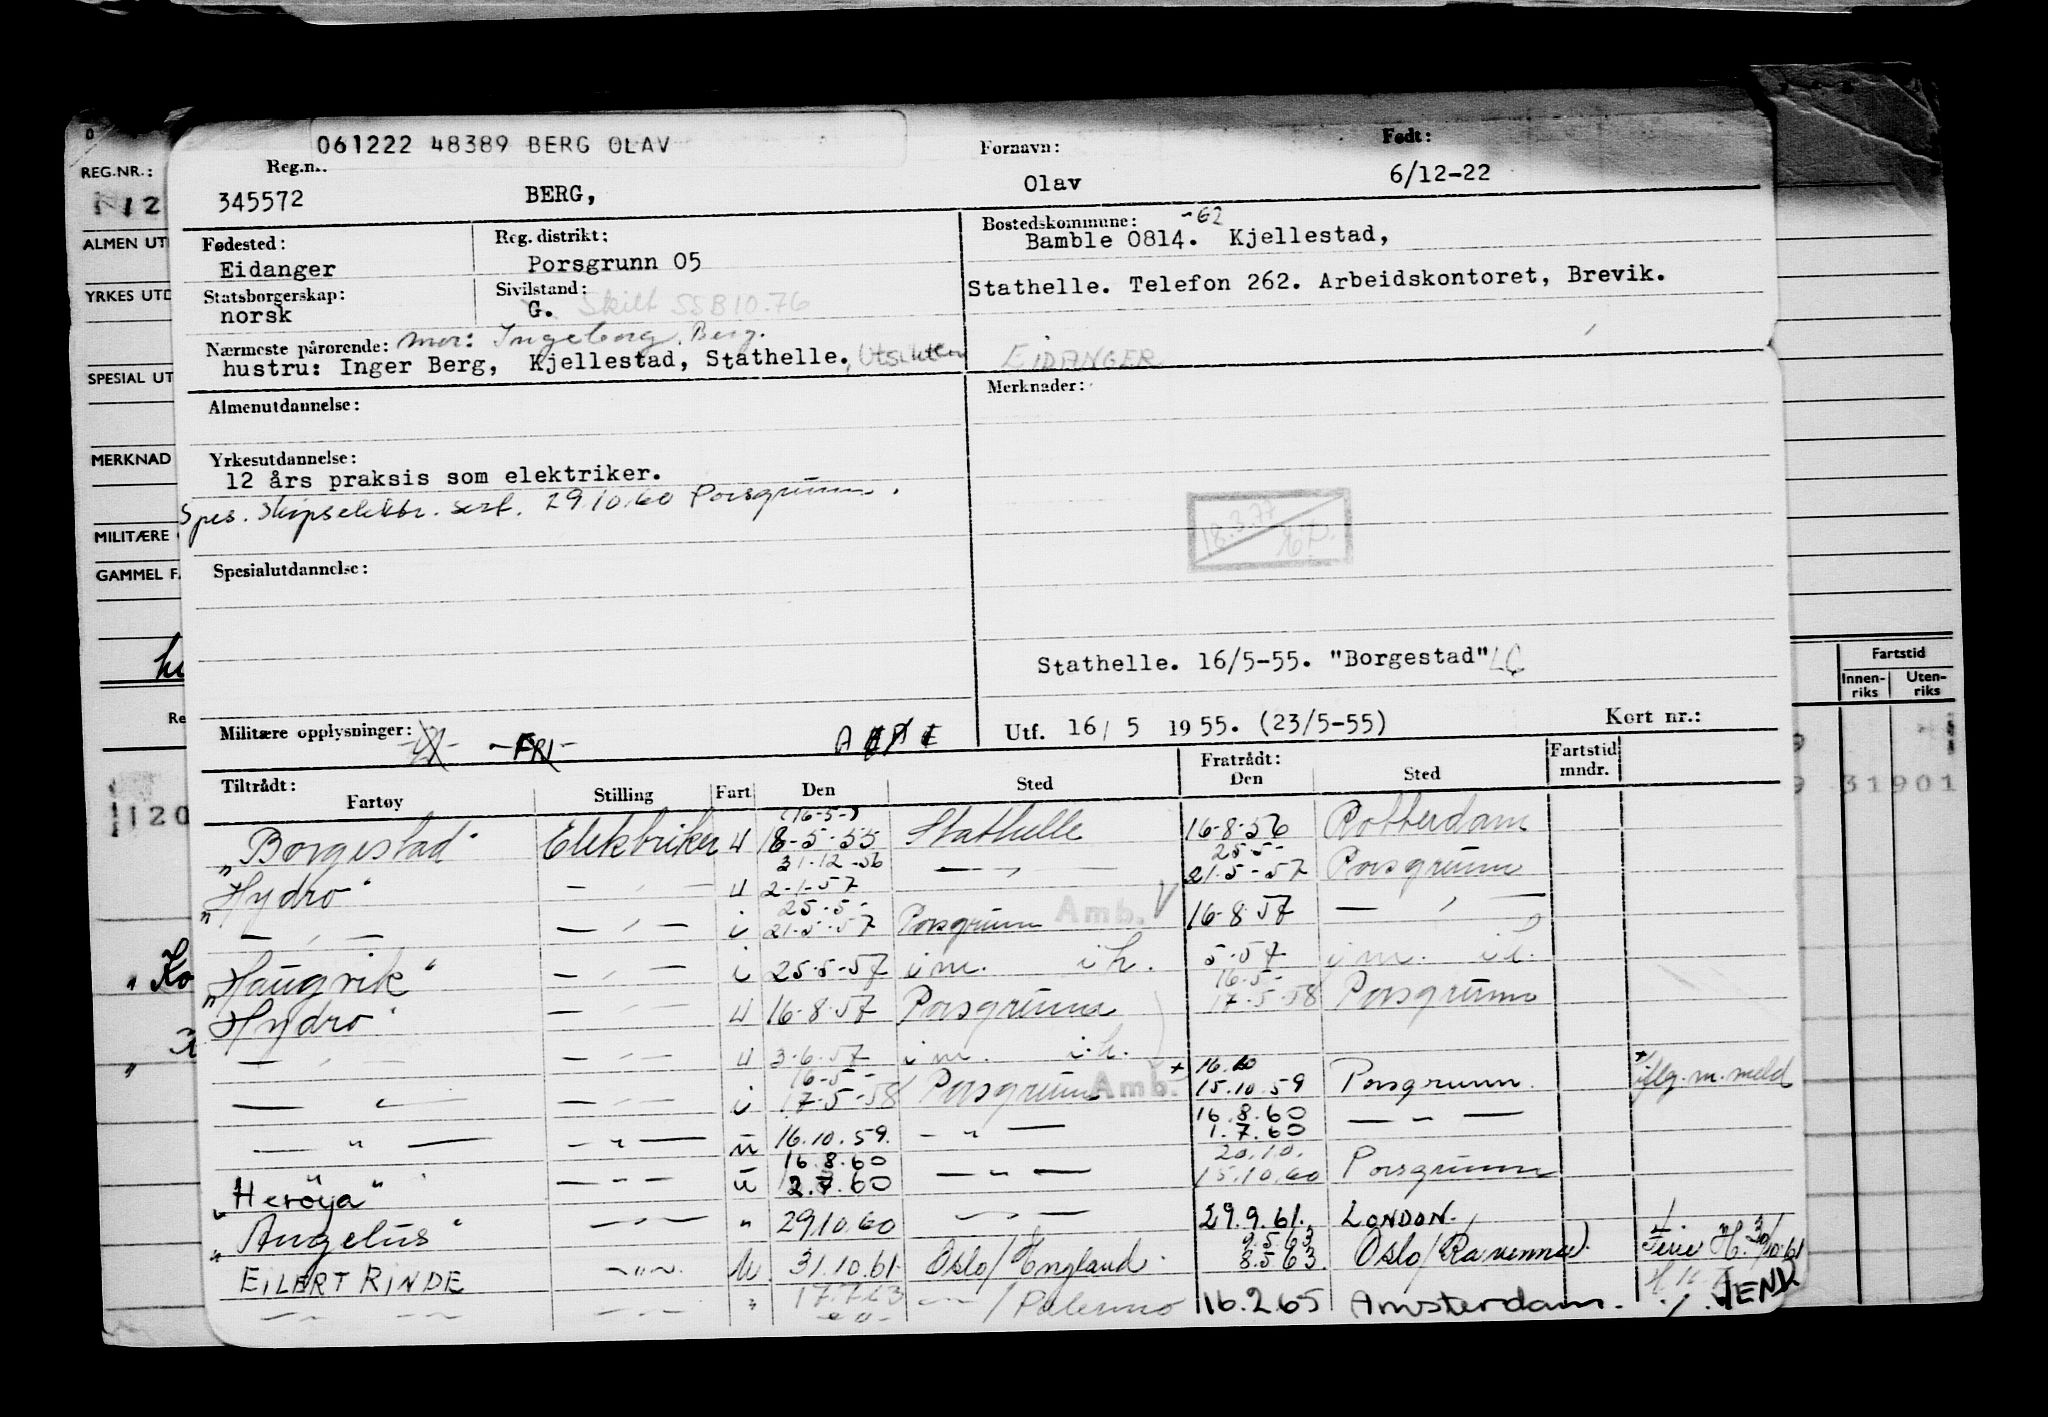 061222 48389 BERG OLAV
Reg.nr. Fornavn: Født:
345572 BERG, Olav 6/12-22
REG.NR.:
ALMEN UT
YRKES UTD
SPECIAL UT
MERKNAD
MILITÆRE
GAMMEL F
Fødested: Reg. distrikt: Bostedskommune: -62
Eidanger Porsgrunn 05 Bamble 0814. Kjellestad,
Statsborgerskap: Sivilstand: Stathelle. Telefon 262. Arbeidskontoret, Brevik.
norsk G. Skilt SSB 10.76
Nærmeste pårørende: mor: Ingeborg Berg.
hustru: Inger Berg, Kjellestad, Stathelle. EIDANGER
Almenutdannelse: Merknader:
Yrkesutdannelse:
12 års praksis som elektriker.
Spes. skipselektr. sert. 29.10.60 Porsgrunn.
18.3.77
Spesialutdannelse:
Stathelle. 16/5-55. "Borgestad"
Militære opplysninger: -FRI-
Utf. 16/5 1955. (23/5-55) Kort nr.:
Fartstid
Innen-riks Uten-riks
31901
Tiltrådt: Fratrådt: Fartstid mndr.
Fartøy Stilling Fart Den Sted Den Sted
(16-5-)
"Borgestad" Elektriker u 18-5-55 Stathelle 16-8-56 Rotterdam
31-12-56 25-5-
"Hydro" — " — u 2-1-57 — " — 21-5-57 Porsgrunn
25-5-
— " — — " — i 21-5-57 Porsgrunn Amb. V 16-8-57 — " —
"Haugvik" — " — i 25-5-57 i m. i h. 5-57 i m. i h.
16-5-
"Hydro" — " — u 16-8-57 Porsgrunn 17-5-58 Porsgrunn
— " — — " — u 3-6-57 i m. i h.
16-5- + 16.10
— " — — " — i 17-5-58 Porsgrunn Amb. 15.10.59 Porsgrunn. + iflg. m. meld
16.8.60
— " — — " — u 16.10.59. — " — 1.7.60 — " —
16.8.60 20.10.
"Herøya" — " — u 2.7.60 — " — 15.10.60 Porsgrunn
"Angelus" — " — " 29.10.60 — " — 29.9.61. LONDON.
9.5.63
EILERT RINDE — " — u. 31.10.61. Oslo/England. 8.5.63. Oslo/(Ravenna). Ferie
— " — — " — " 17.7.63 — " — /Palermo 16.2.65 Amsterdam.